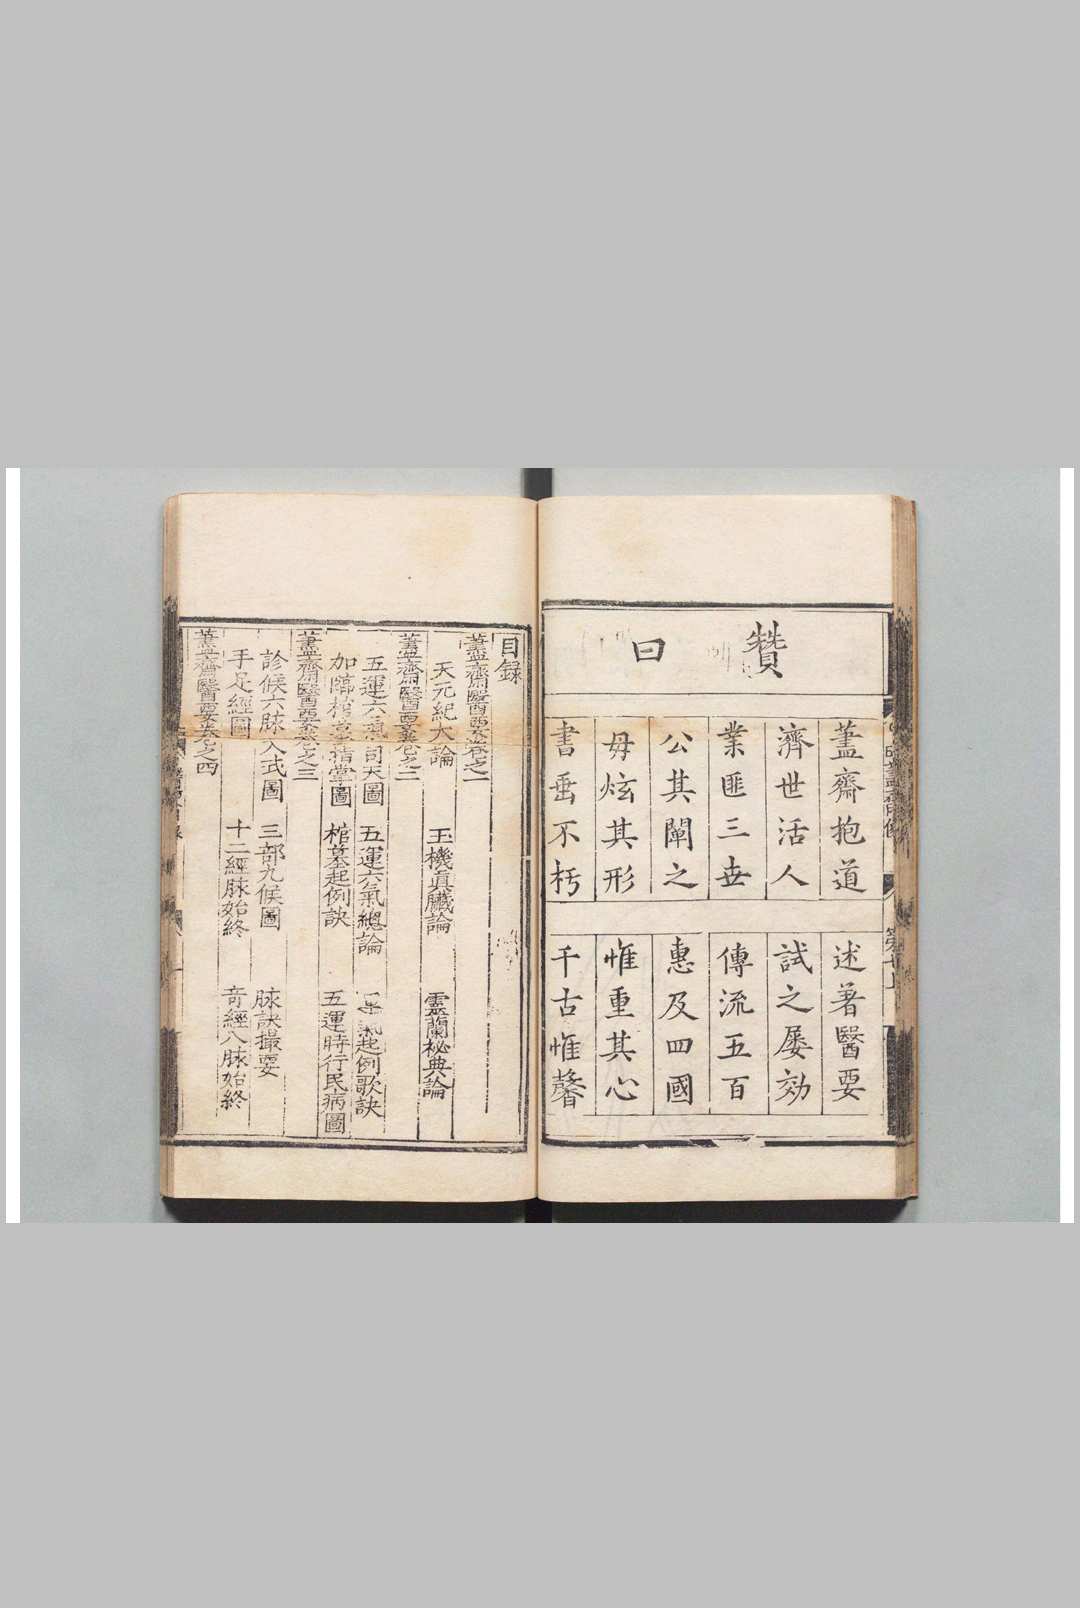 贊曰
藎齋抱道
述著醫要
濟世活人
試之屡効
業匪三世
傳流五百
公其闡之
惠及四國
毋炫其形
惟重其心
書垂不朽
千古惟馨
目録
藎齋醫要卷之一
天元紀大論 玉機眞臟論 靈蘭秘典論
藎齋醫要卷之二
五運六氣司天圖 五運六氣總論 起例歌訣
加臨棺墓指掌圖 棺墓起例訣 五運時行民病圖
藎齋醫要卷之三
診候六脉入式圖 三部九候圖 脉訣撮要
手足經圖 十二經脉始終 奇經八脉始終
藎齋醫要卷之四